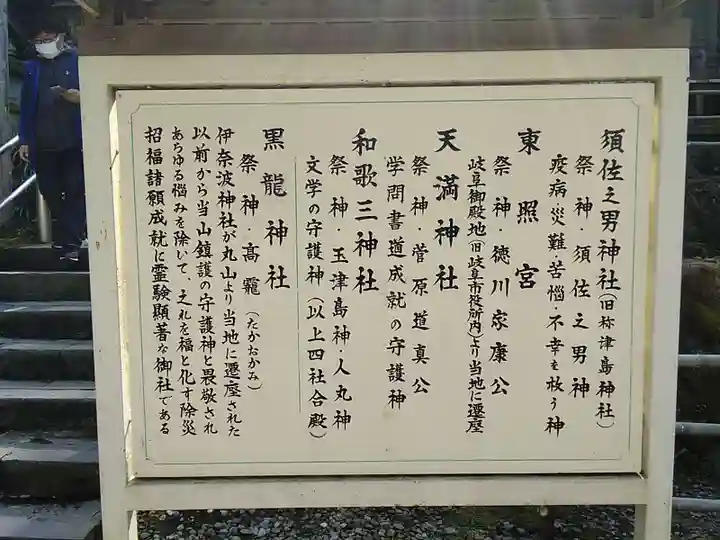 須佐之男神社(旧称津島神社)
祭神・須佐之男神
疫病災難・苦悩・不幸を救う神
東照宮
祭神・徳川家康公
岐阜御殿地(旧岐阜市役所内)より当地に遷座
天満神社
祭神・菅原道真公
学問書道成就の守護神
和歌三神社
祭神・玉津島神・人丸神
文学の守護神(以上四社合殿)
黒龍神社
祭神・高龗(たかおかみ)
伊奈波神社が丸山より当地に遷座された
以前から当山鎮護の守護神と畏敬され
あらゆる悩みを除いて、之れを福と化す除災
招福諸願成就に霊験顕著な御社である